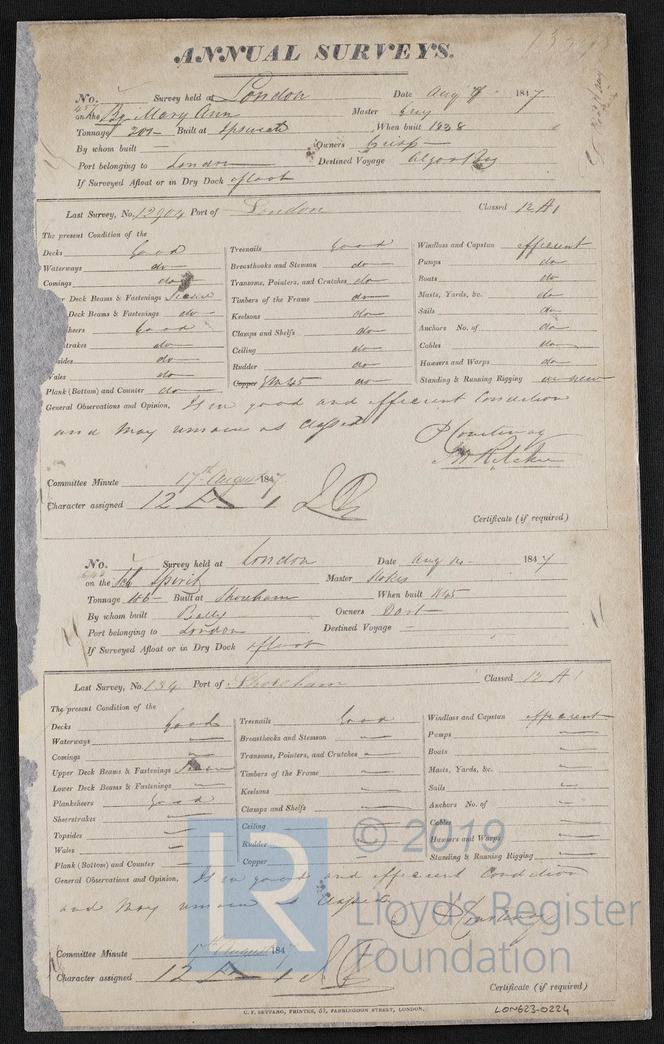 ANNUAL SURVEYS.
No. Survey held at London Date Aug 1847
on the Bg Mary Ann Master
Tonnage 201 Built at Ipswich When built 1838
By whom built — Owners Crisp
Port belonging to London Destined Voyage Algoa Bay
If Surveyed Afloat or in Dry Dock afloat
Last Survey, No. 12904 Port of London Classed 12 A 1
The present Condition of the
Decks Good Treenails Good Windlass and Capstan efficient
Waterways do Breasthooks and Stemson do Pumps do
Comings do Transoms, Pointers, and Crutches do Boats do
r Deck Beams & Fastenings Timbers of the Frame do Masts, Yards, &c. do
Deck Beams & Fastenings do Keelsons do Sails do
heers Good Clamps and Shelfs do Anchors No. of do
trakes do Ceiling do Cables do
sides do Rudder do Hawsers and Warps do
ales do Copper YM 45 do Standing & Running Rigging
Plank (Bottom) and Counter do
General Observations and Opinion, Is in good and efficient Condition
and May remain as Classed
P Courtenay
J H Ritchie
Committee Minute 17th August 1847
Character assigned 12 A 1
Certificate (if required)
No. Survey held at London Date Aug 14 1847
on the Sch Spirit Master Stokes
Tonnage 116 Built at Shoreham When built 1845
By whom built Balley Owners Dart
Port belonging to London Destined Voyage
If Surveyed Afloat or in Dry Dock afloat
Last Survey, No. 134 Port of Shoreham Classed 12 A 1
The present Condition of the
Decks Good Treenails Good Windlass and Capstan efficient
Waterways Breasthooks and Stemson Pumps
Comings Transoms, Pointers, and Crutches Boats
Upper Deck Beams & Fastenings Timbers of the Frame Masts, Yards, &c.
Lower Deck Beams & Fastenings Keelsons Sails
Planksheers Good Clamps and Shelfs Anchors No. of
Sheerstrakes Ceiling Cables
Topsides Rudder Hawsers and Warps
Wales Copper Standing & Running Rigging
Plank (Bottom) and Counter
General Observations and Opinion, Is in good and efficient Condition
and May remain as Classed
P Courtenay
Committee Minute 17th August 1847
Character assigned 12 A 1
Certificate (if required)
C. F. SEYFANG, PRINTER, 57, FARRINGDON STREET, LONDON.
LON623-0224
LR
© 2019
Lloyd's Register
Foundation